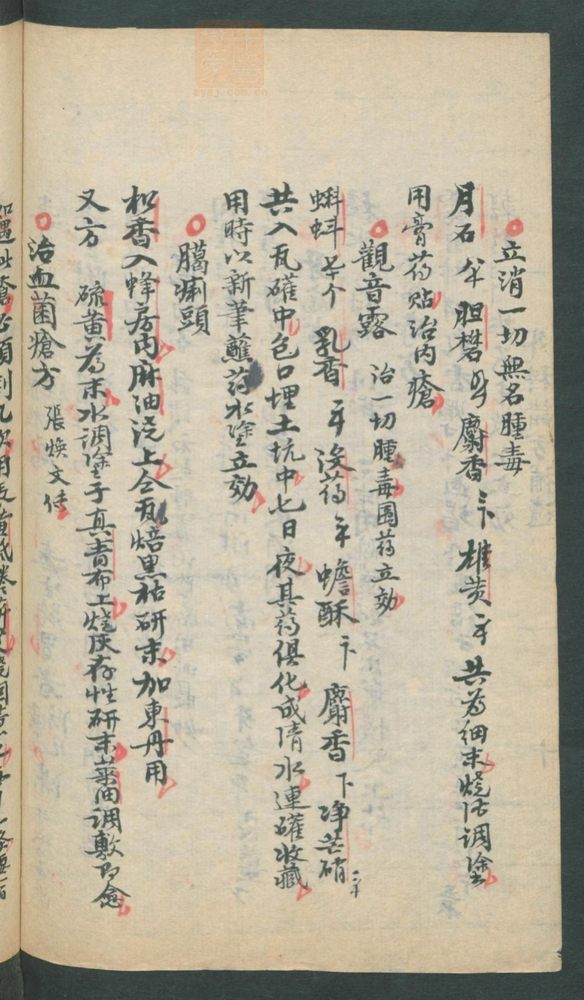 立消一切無名腫毒
月石 胆礬 麝香 雄黄 共為細末燒酒調塗
用膏药贴治内瘡
觀音露 治一切腫毒圍药立効
蝌蚪 个 乳香 没药 蟾酥 麝香 净芒硝
共入瓦礶中包口埋土坑中七日夜其药俱化成清水連礶收藏
用時以新筆蘸药水塗立効
臈痢頭
松香入蜂房内麻油浇上仝瓦焙黑枯研末加東丹用
又方 硫黄為末水調塗于真青布上烧灰存性研末菜油調敷即愈
治血菌瘡方 張焕文传
如遇此瘡必須